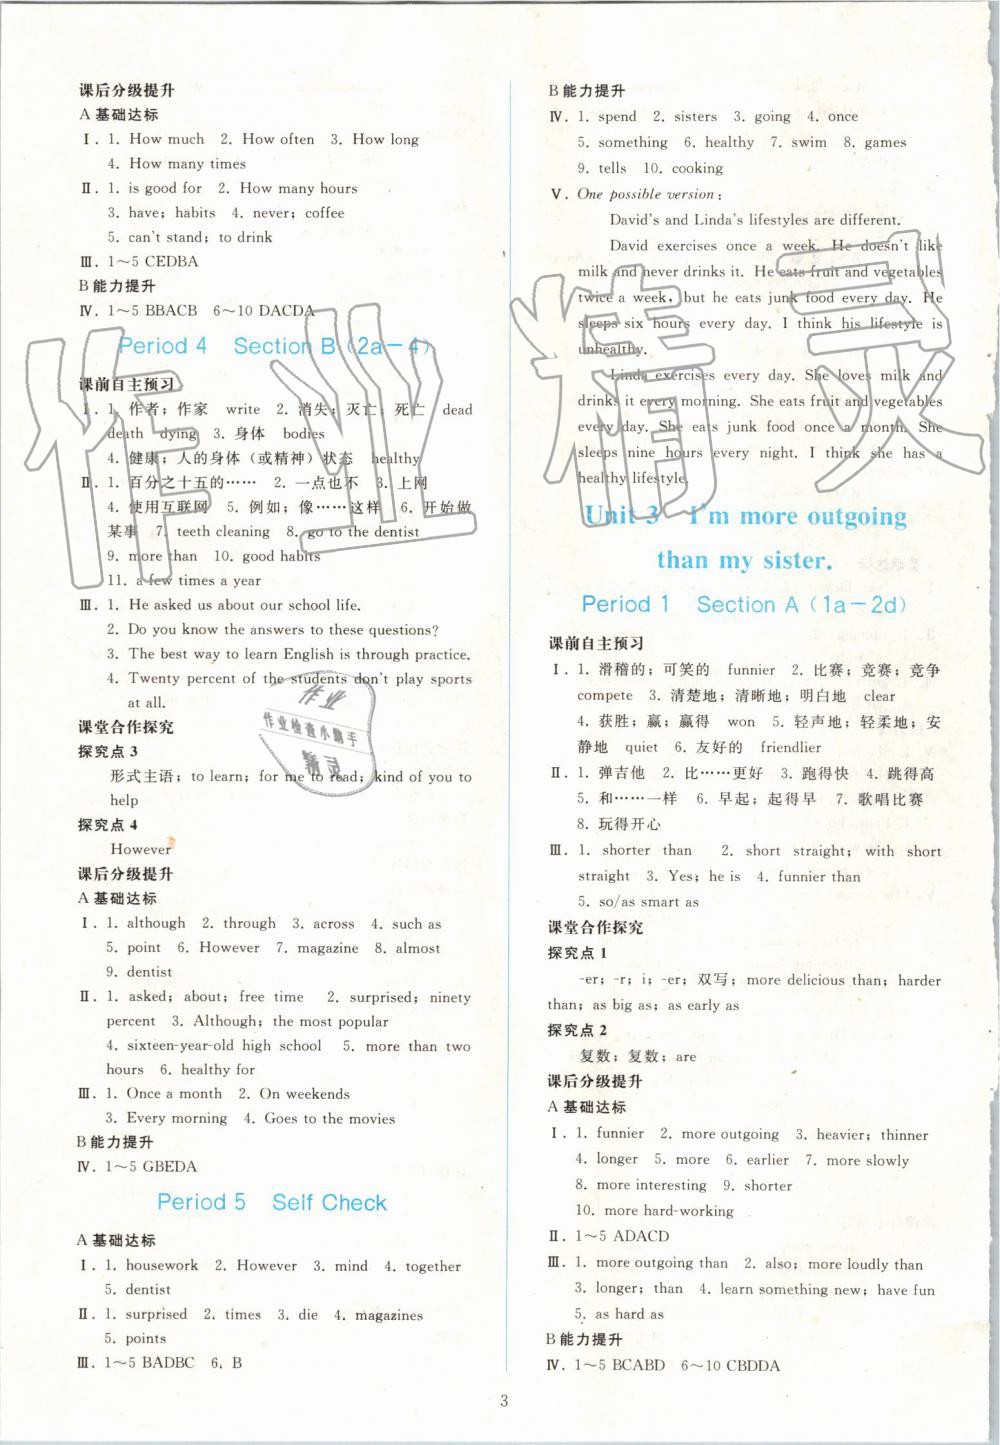 课后分级提升
A 基础达标
Ⅰ. 1. How much 2. How often 3. How long
4. How many times
Ⅱ. 1. is good for 2. How many hours
3. have; habits 4. never; coffee
5. can't stand; to drink
Ⅲ. 1～5 CEDBA
B 能力提升
Ⅳ. 1～5 BBACB 6～10 DACDA
Period 4 Section B (2a－4)
课前自主预习
Ⅰ. 1. 作者；作家 write 2. 消失；灭亡；死亡 dead
death dying 3. 身体 bodies
4. 健康；人的身体（或精神）状态 healthy
Ⅱ. 1. 百分之十五的…… 2. 一点也不 3. 上网
4. 使用互联网 5. 例如；像……这样 6. 开始做
某事 7. teeth cleaning 8. go to the dentist
9. more than 10. good habits
11. a few times a year
Ⅲ. 1. He asked us about our school life.
2. Do you know the answers to these questions?
3. The best way to learn English is through practice.
4. Twenty percent of the students don't play sports
at all.
课堂合作探究
探究点 3
形式主语；to learn; for me to read; kind of you to
help
探究点 4
However
课后分级提升
A 基础达标
Ⅰ. 1. although 2. through 3. across 4. such as
5. point 6. However 7. magazine 8. almost
9. dentist
Ⅱ. 1. asked; about; free time 2. surprised; ninety
percent 3. Although; the most popular
4. sixteen-year-old high school 5. more than two
hours 6. healthy for
Ⅲ. 1. Once a month 2. On weekends
3. Every morning 4. Goes to the movies
B 能力提升
Ⅳ. 1～5 GBEDA
Period 5 Self Check
A 基础达标
Ⅰ. 1. housework 2. However 3. mind 4. together
5. dentist
Ⅱ. 1. surprised 2. times 3. die 4. magazines
5. points
Ⅲ. 1～5 BADBC 6. B
B 能力提升
Ⅳ. 1. spend 2. sisters 3. going 4. once
5. something 6. healthy 7. swim 8. games
9. tells 10. cooking
Ⅴ. One possible version:
David's and Linda's lifestyles are different.
David exercises once a week. He doesn't like
milk and never drinks it. He eats fruit and vegetables
twice a week, but he eats junk food every day. He
sleeps six hours every day. I think his lifestyle is
unhealthy.
Linda exercises every day. She loves milk and
drinks it every morning. She eats fruit and vegetables
every day. She eats junk food once a month. She
sleeps nine hours every night. I think she has a
healthy lifestyle.
Unit 3 I'm more outgoing
than my sister.
Period 1 Section A (1a－2d)
课前自主预习
Ⅰ. 1. 滑稽的；可笑的 funnier 2. 比赛；竞赛；竞争
compete 3. 清楚地；清晰地；明白地 clear
4. 获胜；赢；赢得 won 5. 轻声地；轻柔地；安
静地 quiet 6. 友好的 friendlier
Ⅱ. 1. 弹吉他 2. 比……更好 3. 跑得快 4. 跳得高
5. 和……一样 6. 早起；起得早 7. 歌唱比赛
8. 玩得开心
Ⅲ. 1. shorter than 2. short straight; with short
straight 3. Yes; he is 4. funnier than
5. so/as smart as
课堂合作探究
探究点 1
-er; -r; i; -er; 双写; more delicious than; harder
than; as big as; as early as
探究点 2
复数；复数；are
课后分级提升
A 基础达标
Ⅰ. 1. funnier 2. more outgoing 3. heavier; thinner
4. longer 5. more 6. earlier 7. more slowly
8. more interesting 9. shorter
10. more hard-working
Ⅱ. 1～5 ADACD
Ⅲ. 1. more outgoing than 2. also; more loudly than
3. longer; than 4. learn something new; have fun
5. as hard as
B 能力提升
Ⅳ. 1～5 BCABD 6～10 CBDDA
3
作业精灵
作业
作业检查小助手
精灵